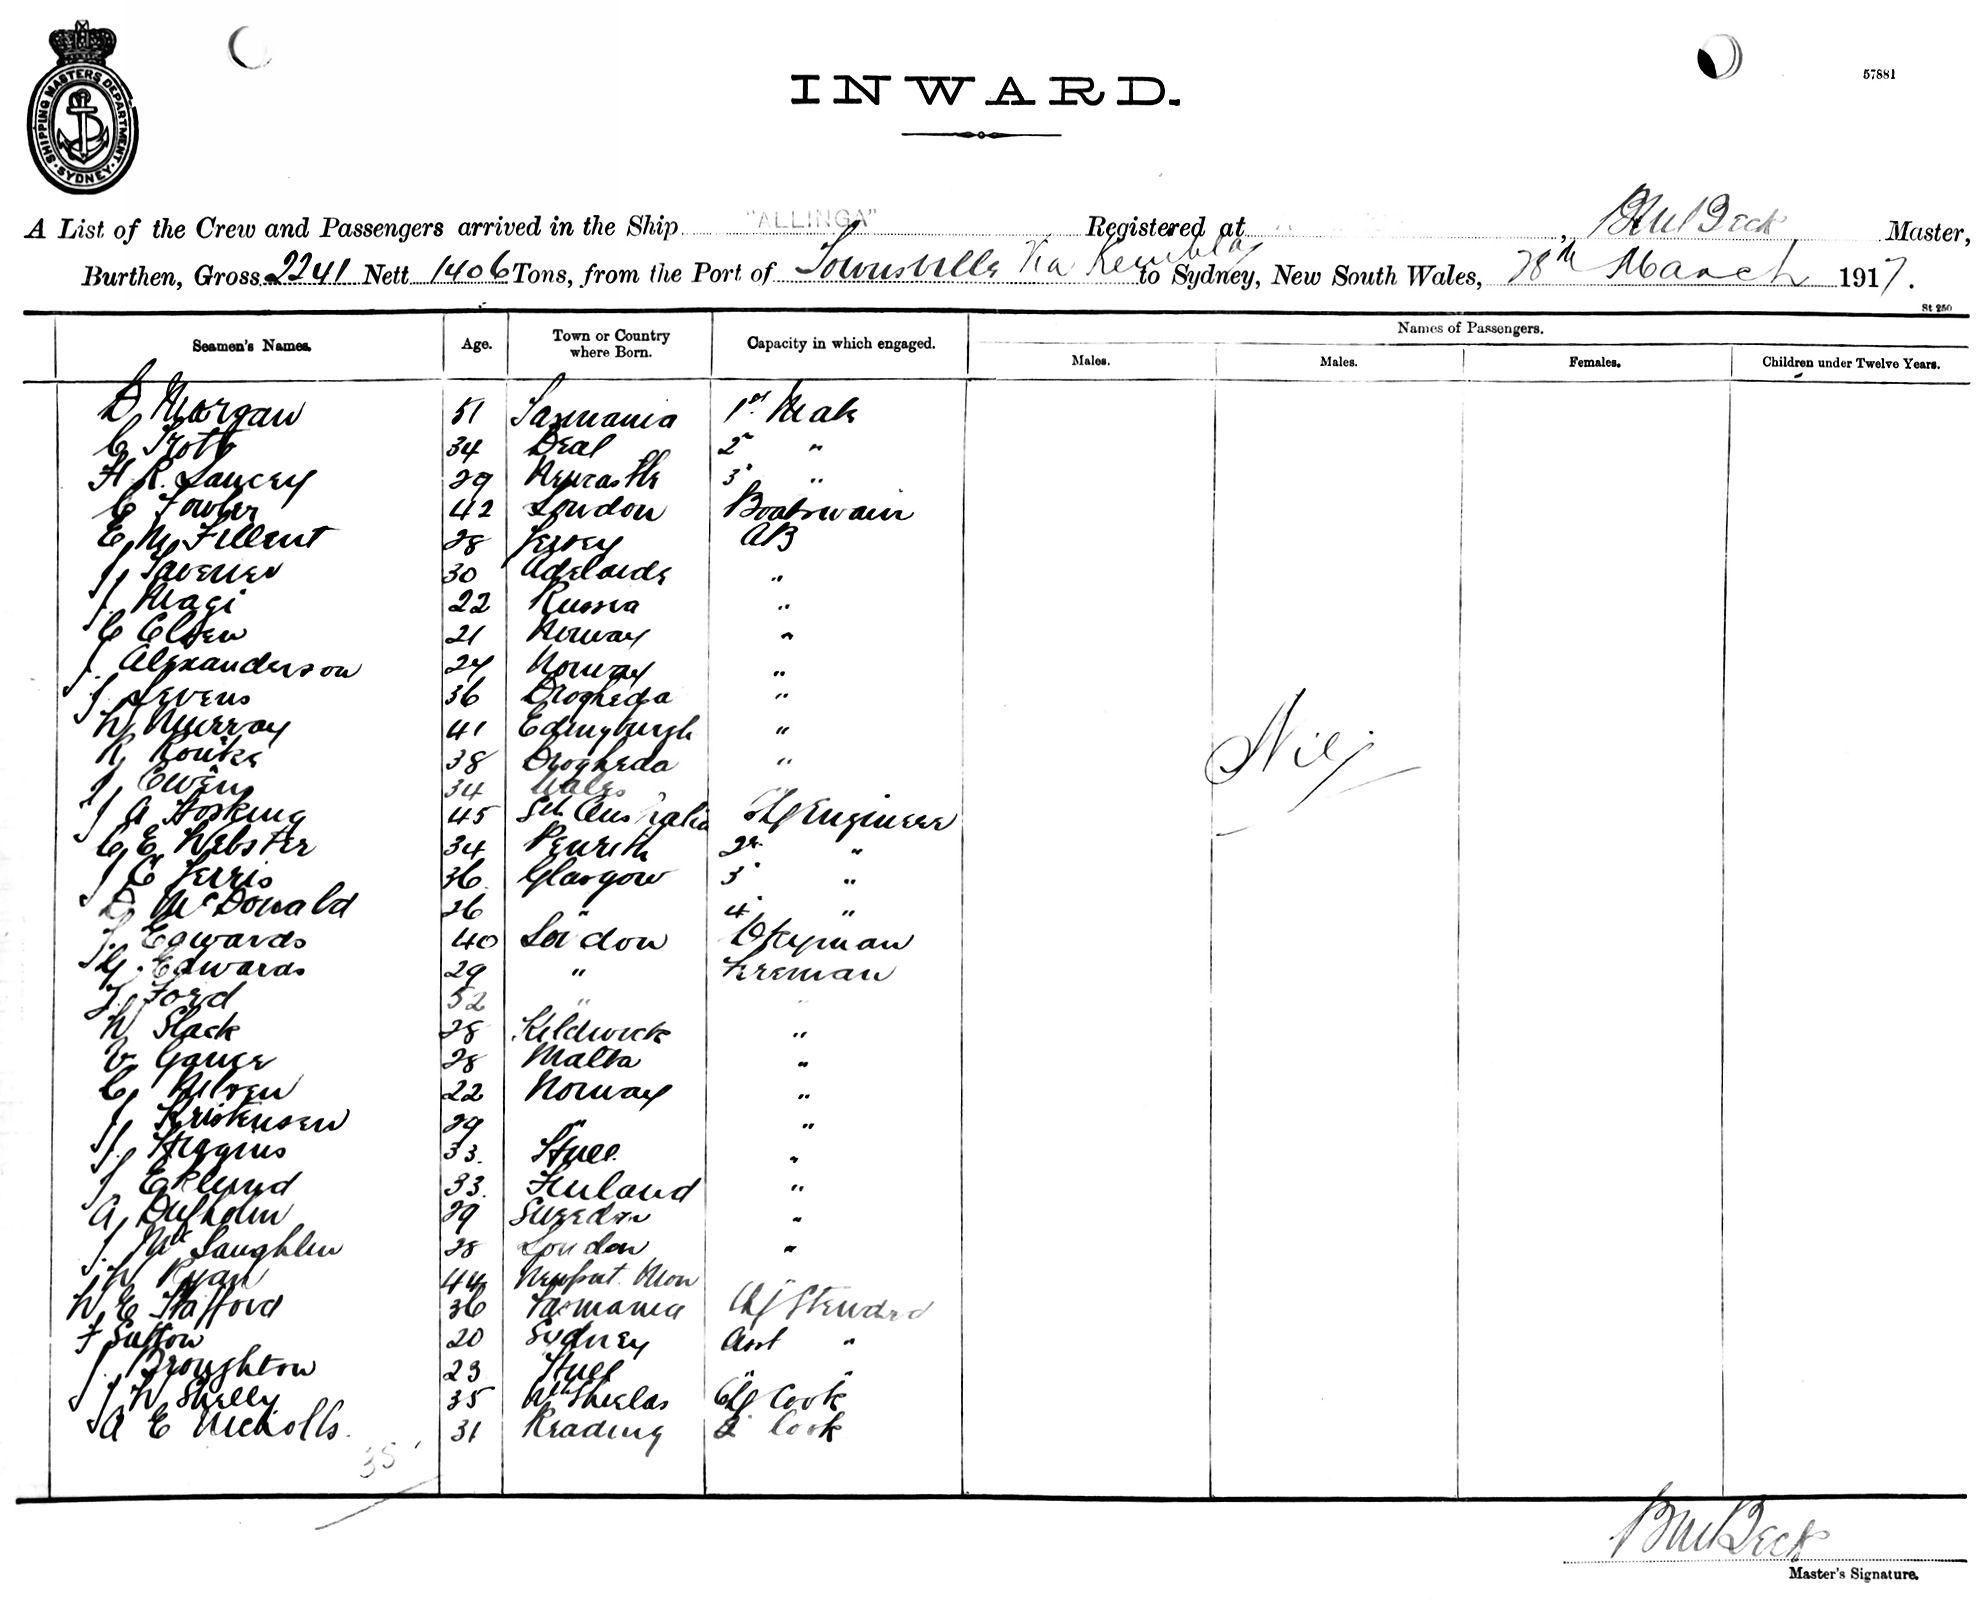 SHIPPING MASTERS DEPARTMENT
SYDNEY
57881
INWARD.
A List of the Crew and Passengers arrived in the Ship "ALLINGA" Registered at , Beck Master,
Burthen, Gross 2241 Nett 1406 Tons, from the Port of Townsville Via Kembla to Sydney, New South Wales, 28th March 1917.
St 250
Seamen's Names. Age. Town or Country where Born. Capacity in which engaged. Names of Passengers.
Males. Males. Females. Children under Twelve Years.
D Morgan 51 Tasmania 1st Mate
C Trott 34 Deal 2n "
H. R. Lancey 29 Newcastle 3 "
C Fowler 42 London Boatswain
E M Fillent 28 Jersey AB
J Tavener 30 Adelaide "
J. Magi 22 Russia "
C Olsen 21 Norway "
J. Alexanderson 24 Norway "
J. Levens 36 Drogheda "
W Murray 41 Edinburgh "
R Rourke 38 Drogheda "
J Owens 34 Wales
J A Hosking 45 Sth Australia Chf Engineer
C E Webster 34 Penrith 2n "
J C Ferris 36 Glasgow 3 "
D McDonald 26 " 4 "
J. Edwards 40 London Dkeyman
G. Edwards 29 " Fireman
J. Ford 52 " "
W Slack 28 Kildwick "
V Gauci 28 Malta "
C. Nilsen 22 Norway "
J Kristensen 29 " "
J. Higgins 33. Hull "
J Eklund 33. Finland "
A, Dufholm 29 Sweeden "
J. McLaughlin 28 London "
W Ryan 44 Newport Mon
W. E. Stafford 36 Tasmania Chf Steward
F Sutton 20 Sydney Asst "
J. Broughton 23 Hull " "
J W Shelly 35 Nth Shields Chf Cook
A E Nicholls. 31 Reading 2 Cook
Nil
35
Beck
Master's Signature.